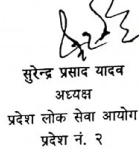 सुरेन्द्र प्रसाद यादव
अध्यक्ष
प्रदेश लोक सेवा आयोग
प्रदेश नं. २